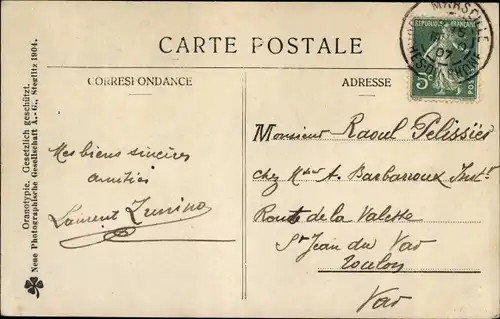 CARTE POSTALE
CORRESPONDANCE
ADRESSE
REPUBLIQUE FRANÇAISE
5c
POSTES
MARSEILLE
Mes biens sincères
amitiés
Laurent Zunino
Monsieur Raoul Pelissier
chez Mr A. Barbarroux Instr
Route de la Valette
St Jean du Var
Toulon
Var
Oranotypie. Gesetzlich geschützt.
Neue Photographische Gesellschaft A.-G., Steglitz 1904.